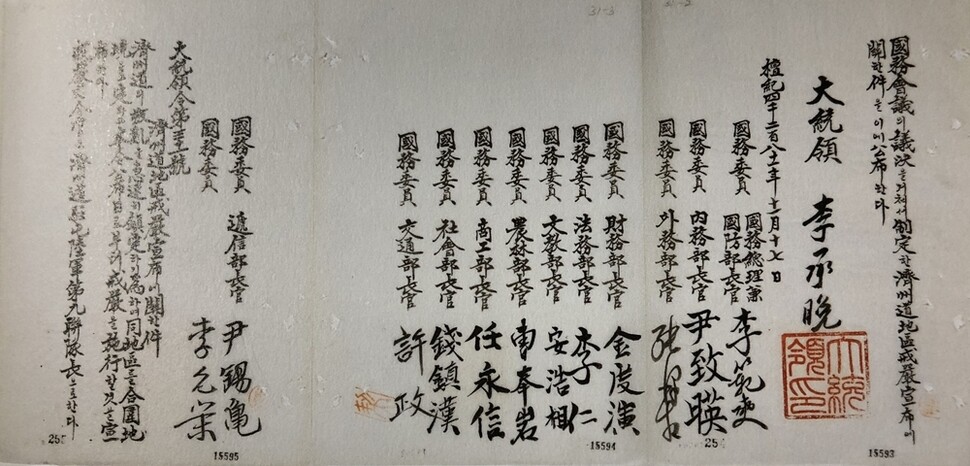 國務會議의 議決을 거쳐서 制定한 濟州道地區戒嚴宣布에
關한 件을 이에 公布한다
大統領 李承晩
大統領印
檀紀四千二百八十一年十一月十七日
國務委員 國務總理兼
國防部長官 李範奭
國務委員 內務部長官 尹致暎
國務委員 外務部長官
國務委員 財務部長官 金度演
國務委員 法務部長官 李仁
國務委員 文敎部長官 安浩相
國務委員 農林部長官
國務委員 商工部長官 任永信
國務委員 社會部長官 錢鎮漢
國務委員 交通部長官 許政
國務委員 遞信部長官 尹錫龜
國務委員 李允榮
大統領令第三十一號
濟州道地區戒嚴宣布에 關한 件
濟州道의 叛亂을 急速히 鎭定하기 爲하야 同地區를 合圍地
境으로 定하고 本令 公布日로부터 戒嚴을 施行할 것을 宣
布한다
戒嚴司令官은 濟州道駐屯陸軍第九聯隊長으로 한다
31-3
31-2
255
15595
15594
254
15593